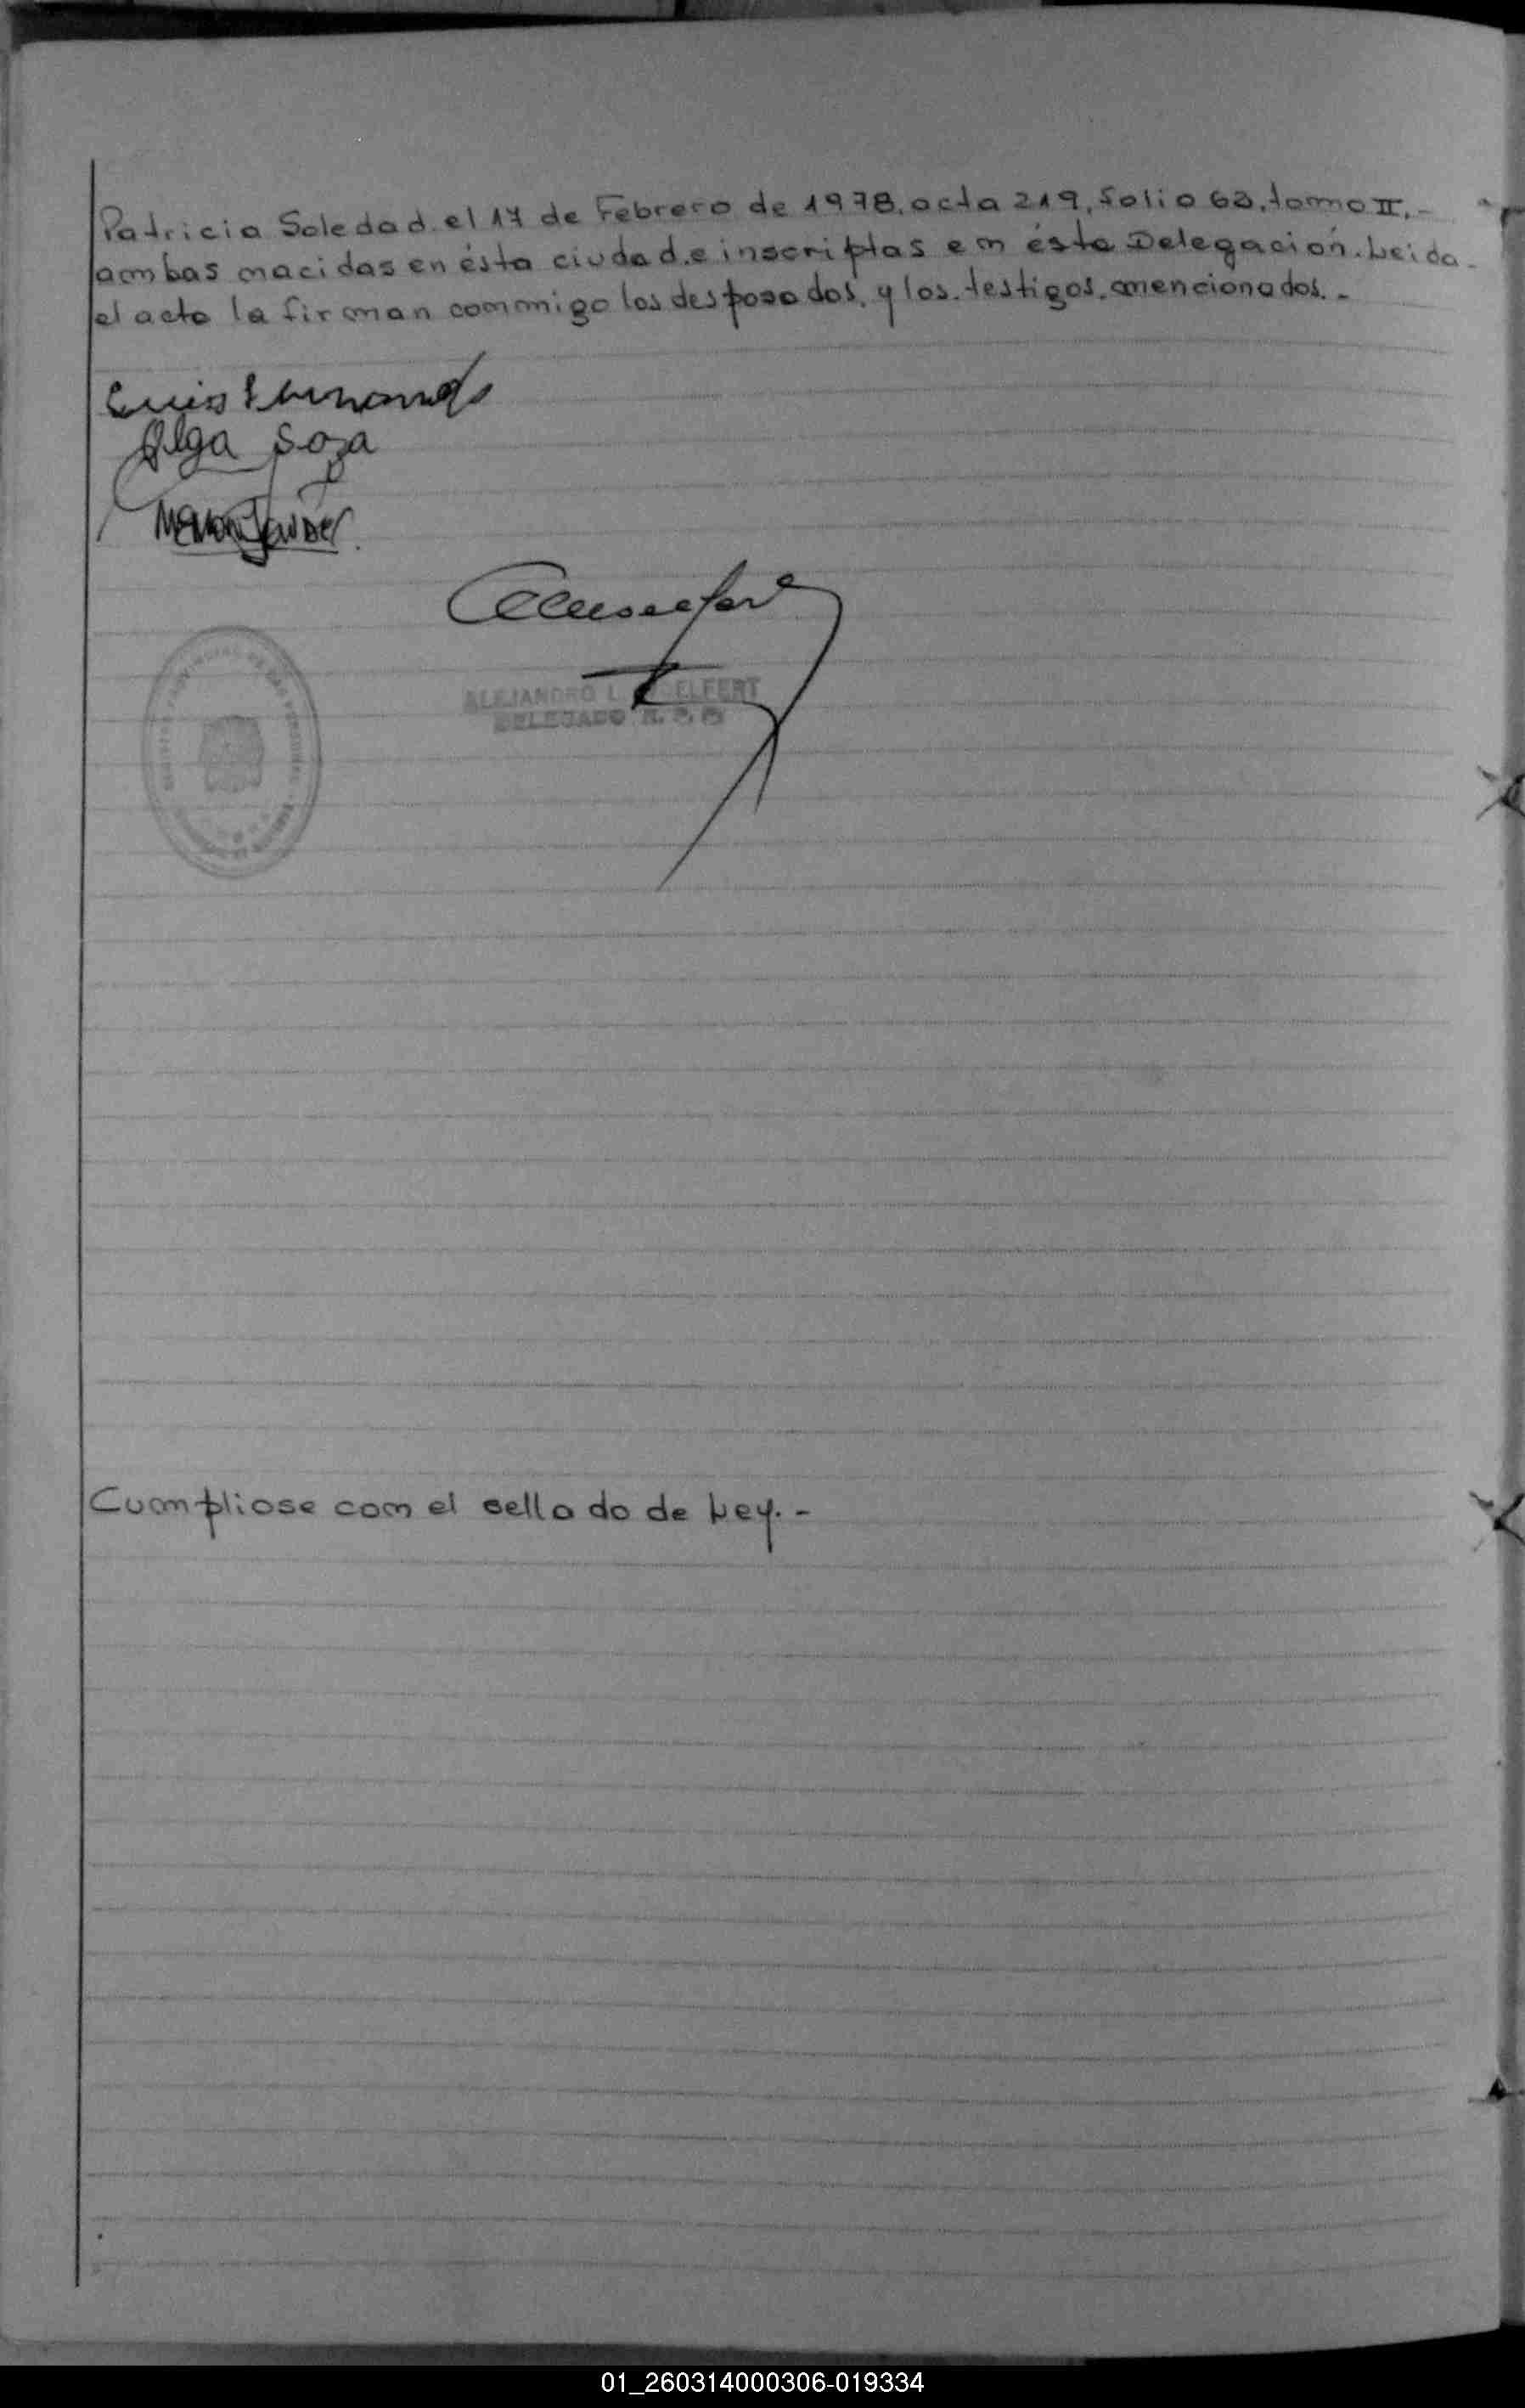 Patricia Soledad. el 17 de Febrero de 1978. acta 219, folio 63, tomo II.-
ambas nacidas en ésta ciudad. e inscriptas en ésta Delegación. Leida-
el acta la firman conmigo los desposados, y los testigos. mencionados.-
Luis Hernandez
Olga Soza
ALEJANDRO L.
DELEGADO R.
Cumpliose con el sellado de Ley.-
01_260314000306-019334